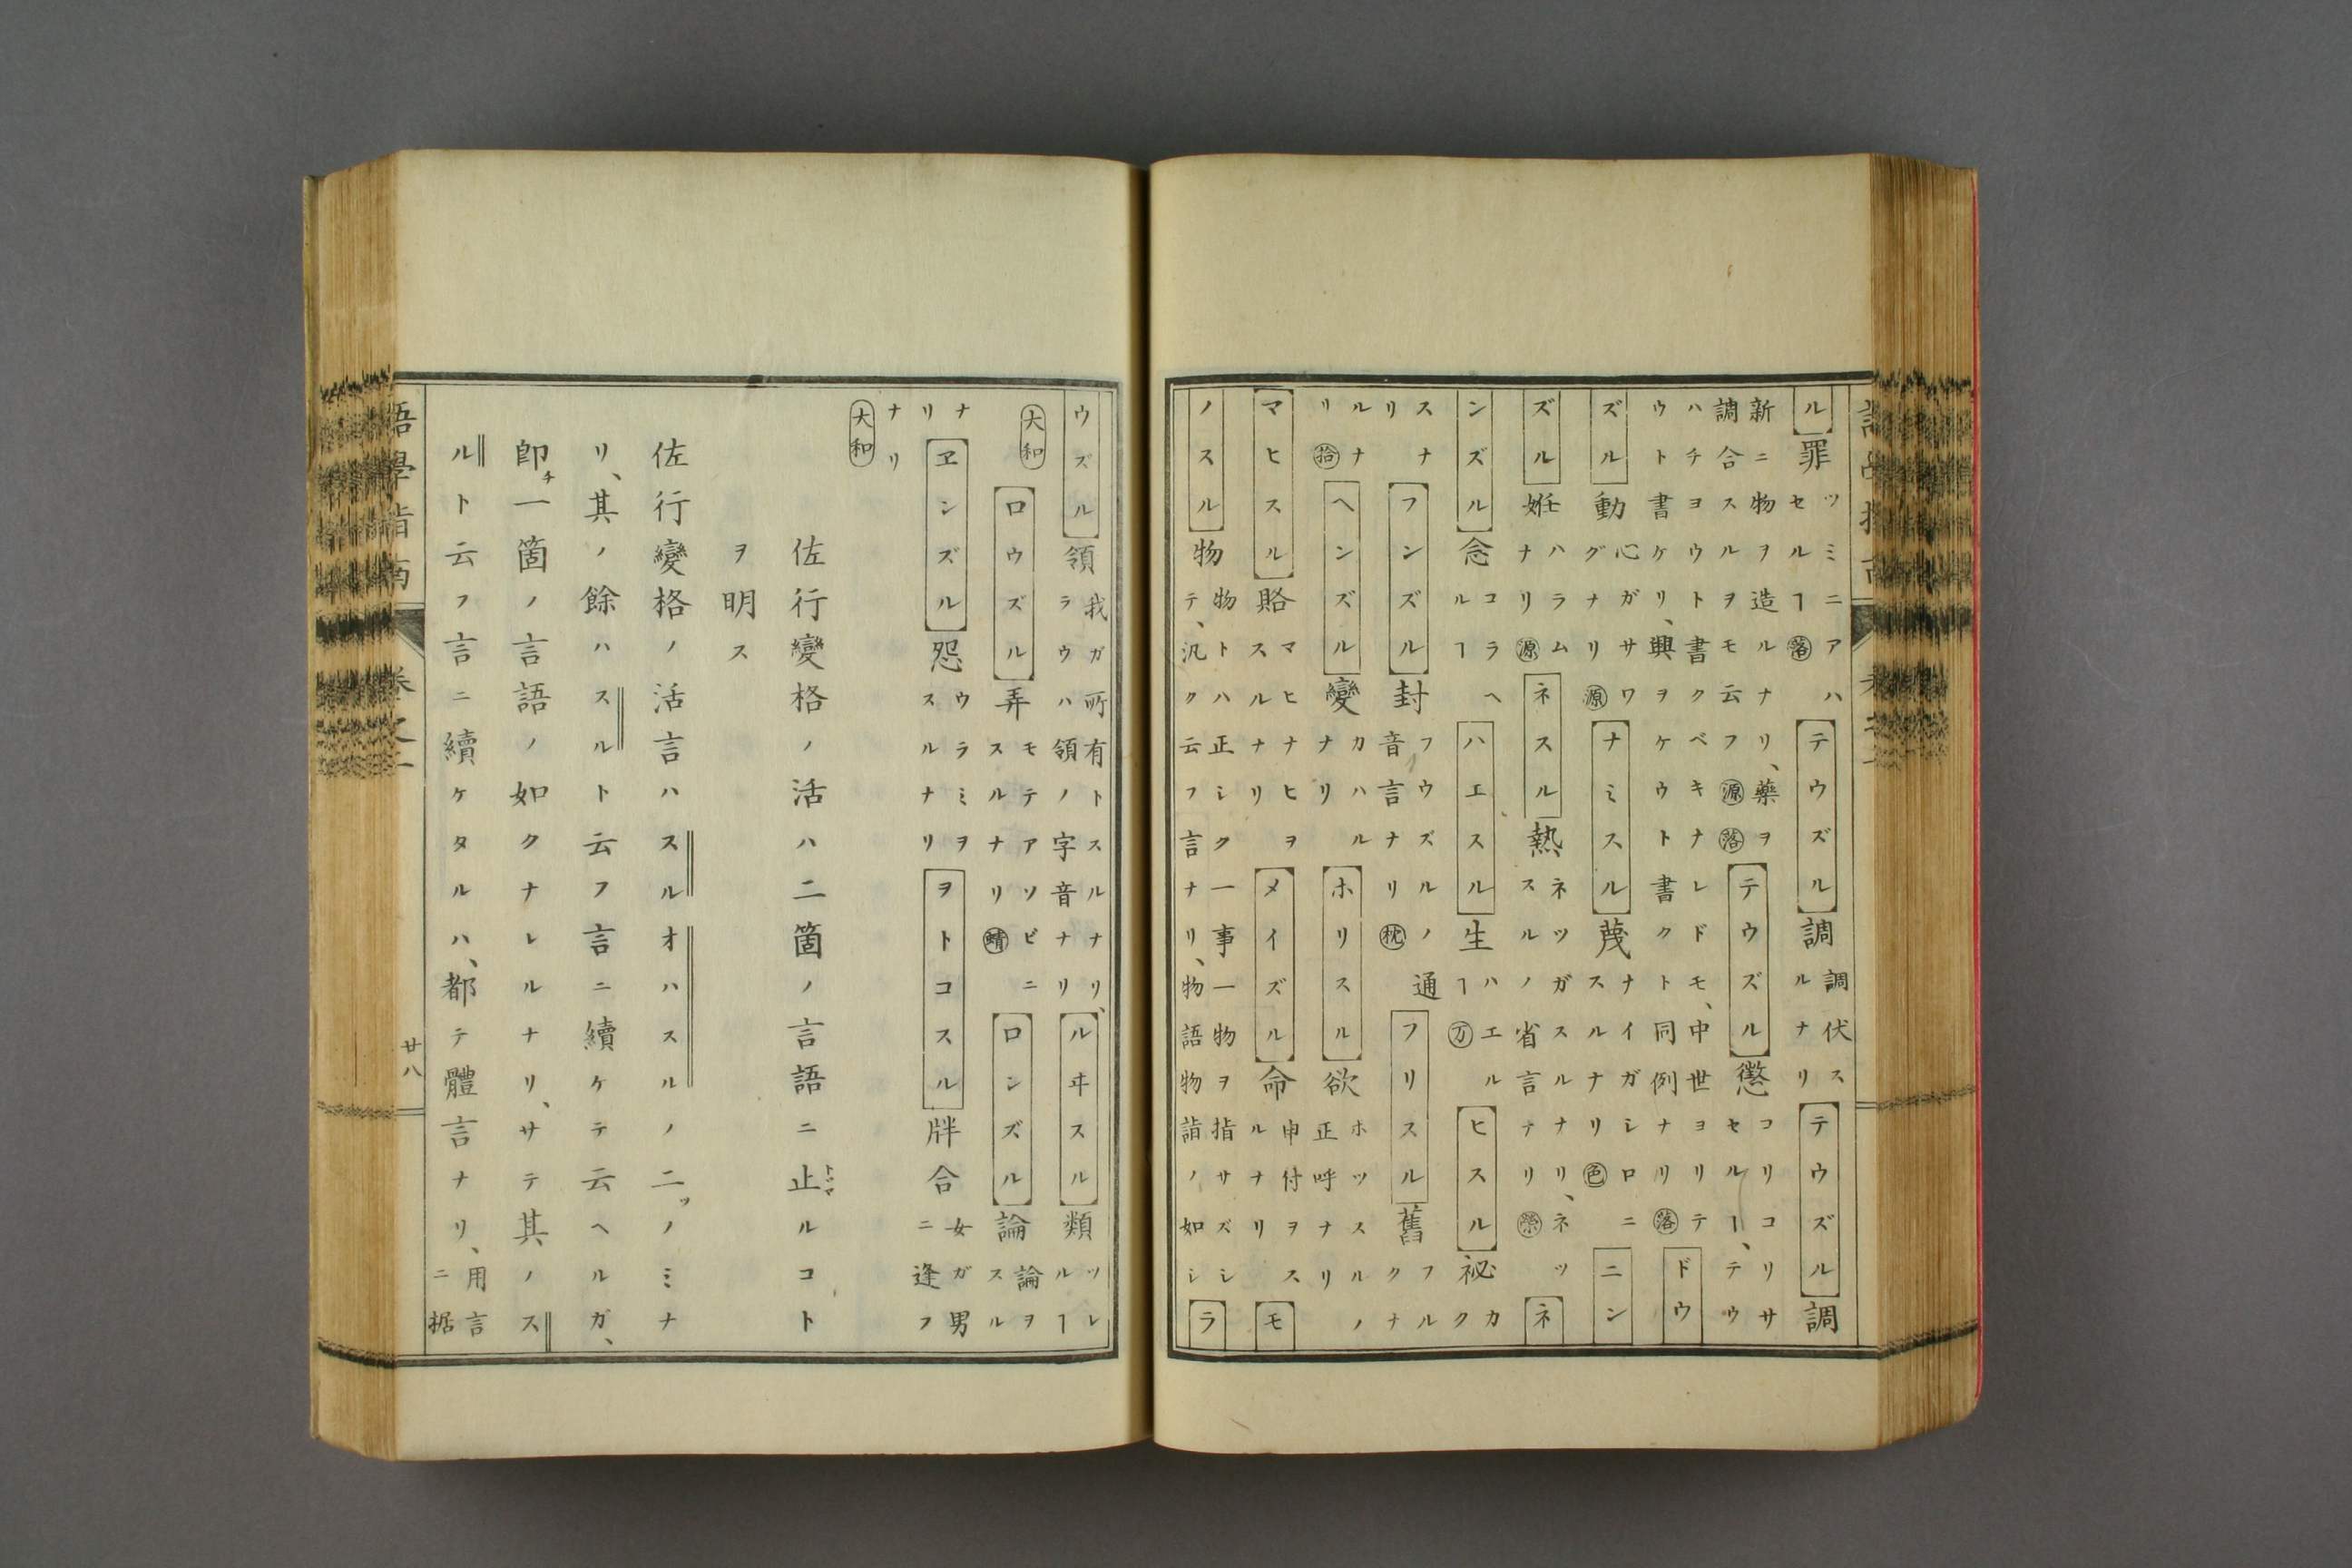 ル罪ツミニアハ
セルヿ落テウズル調調伏ス
ルナリテウズル調
新ニ物ヲ造ルナリ、藥ヲ
調合スルヲモ云フ源落テウズル懲コリコリサ
セルヿ、テウ
ハチヨウト書クベキナレドモ、中世ヨリテ
ウト書ケリ、興ヲケウト書クト同例ナリ落ドウ
ズル動心ガサワ
グナリ源ナミスル蔑ナイガシロニ
スルナリ色ニン
ズル妊ハラム
ナリ源ネスル熱ネツガスルナリ、ネツ
スルノ省言ナリ榮ネ
ンズル念コラヘ
ルヿハエスル生ハエル
ヿ万ヒスル祕カ
ク
スナ
リフンズル封フウズルノ通
音言ナリ枕フリスル舊フル
クナ
ルナ
リ拾ヘンズル變カハル
ナリホリスル欲ホツスルノ
正呼ナリ
マヒスル賂マヒナヒヲ
スルナリメイズル命申付ヲス
ルナリモ
ノスル物物トハ正シク一事一物ヲ指サズシ
テ、汎ク云フ言ナリ、物語物詣ノ如シラ
ウズル領我ガ所有トスルナリ、
ラウハ領ノ字音ナリルヰスル類ツレ
ルヿ
大和ロウズル弄モテアソビニ
スルナリ蜻ロンズル論論ヲ
スル
ナ
リヱンズル怨ウラミヲ
スルナリヲトコスル牉合女ガ男
ニ逢フ
ナリ
大和
佐行變格ノ活ハ二箇ノ言語ニ止トヾマルコト
ヲ明ス
佐行變格ノ活言ハスルオハスルノ二ツノミナ
リ、其ノ餘ハスルト云フ言ニ續ケテ云ヘルガ、
卽チ一箇ノ言語ノ如クナレルナリ、サテ其ノス
ルト云フ言ニ續ケタルハ、都テ體言ナリ、用言
ニ据
語學指南 卷之二 廿八